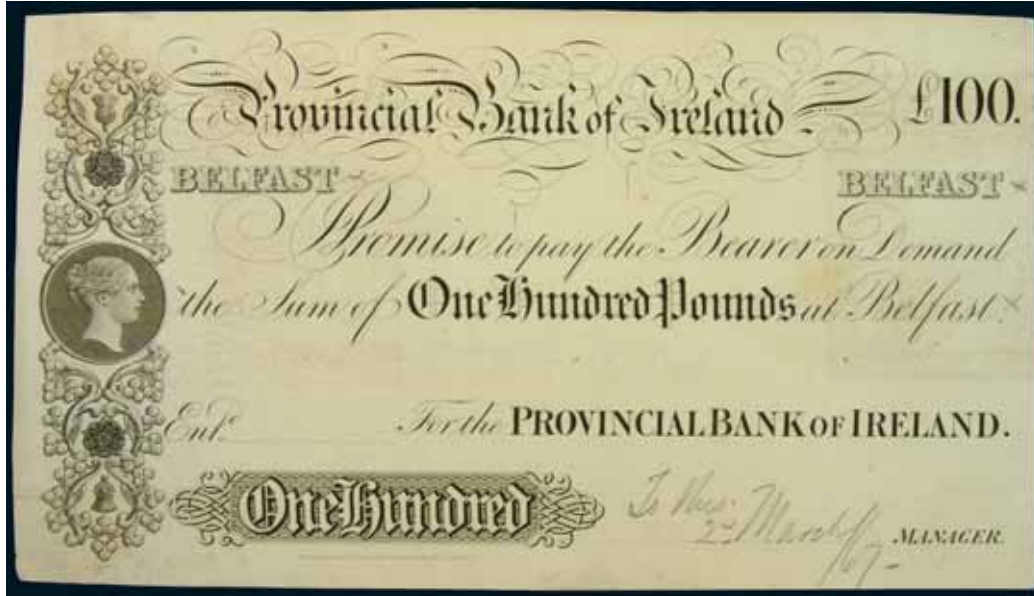 Provincial Bank of Ireland £100.
BELFAST BELFAST
I Promise to pay the Bearer on Demand
the Sum of One Hundred Pounds at Belfast
Entd. For the PROVINCIAL BANK OF IRELAND.
One Hundred
2nd March/67 MANAGER.